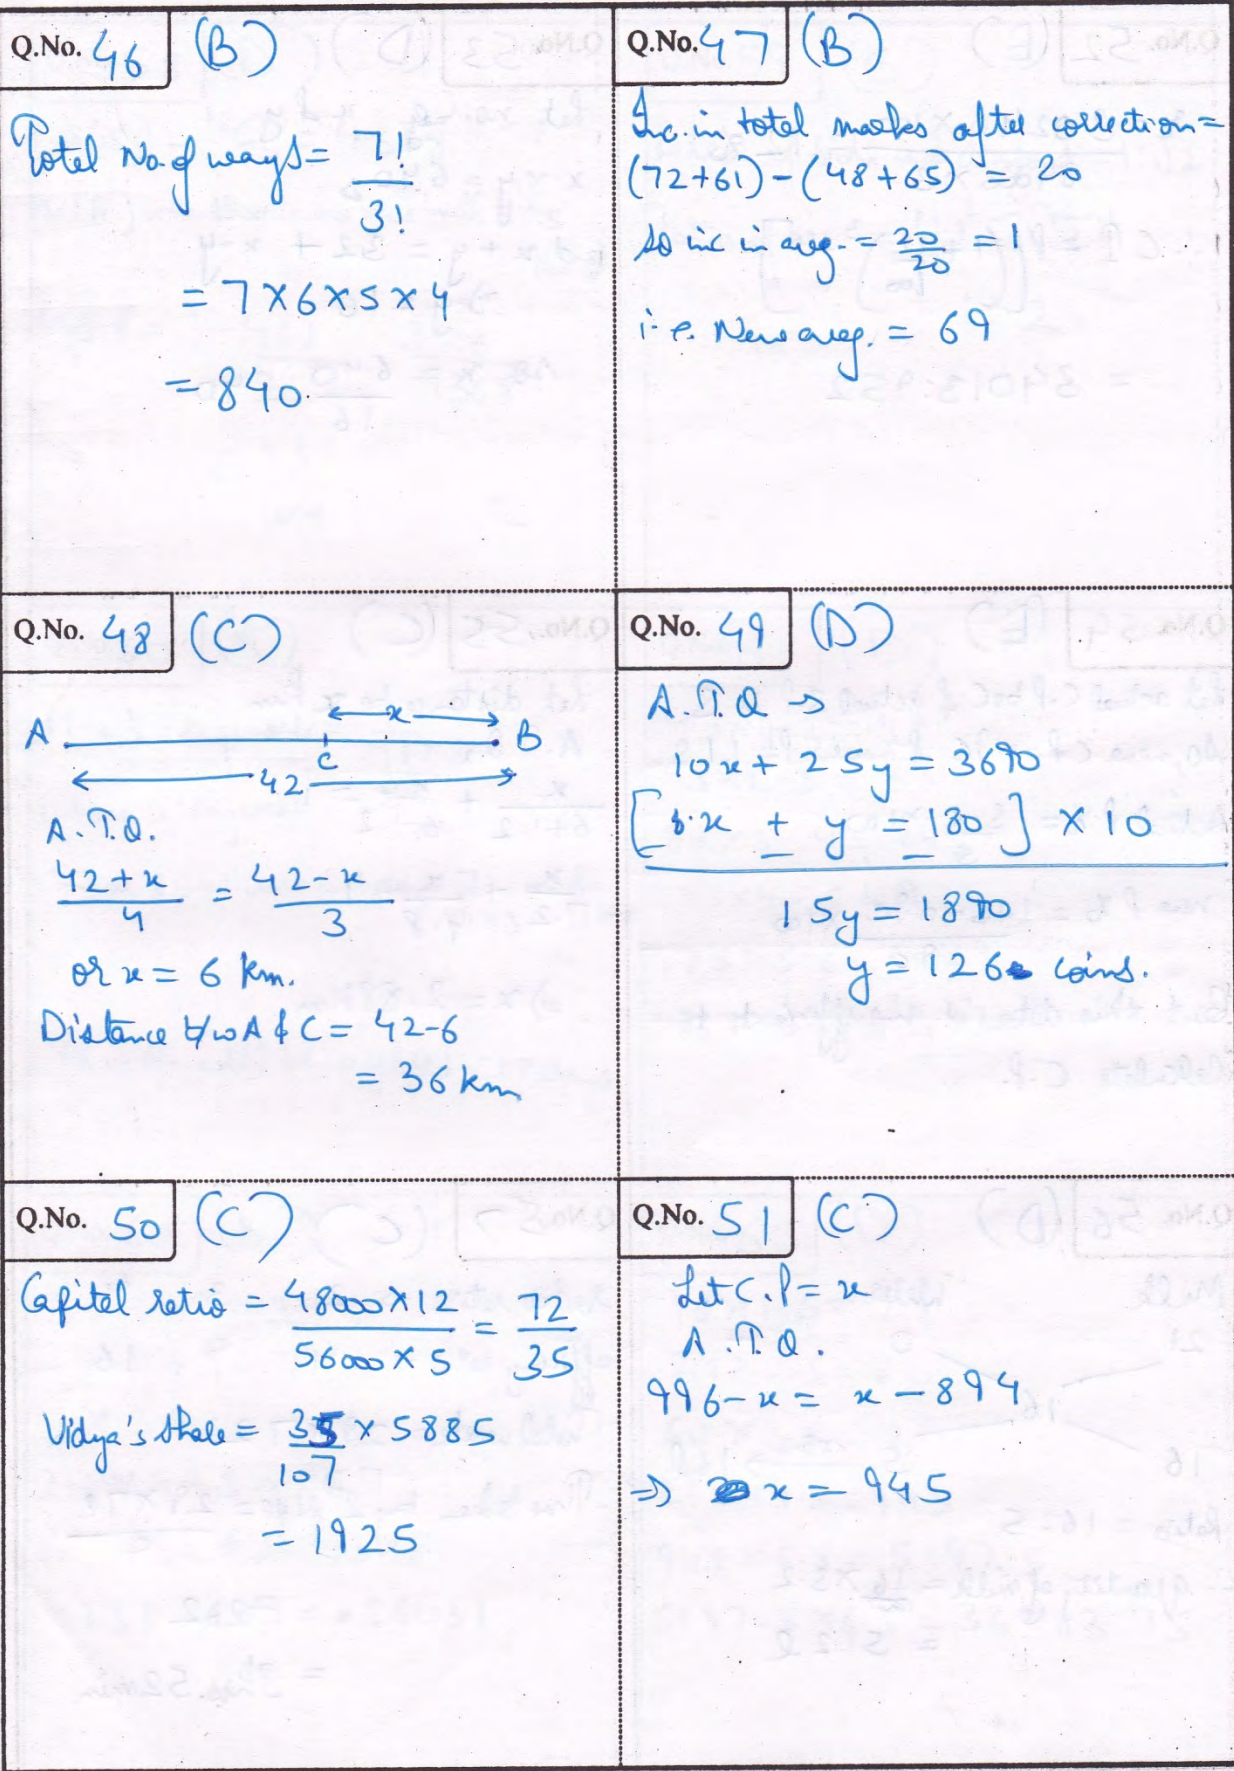 Q.No. 46 (B)
Total No. of ways = 7!
3!
= 7 × 6 × 5 × 4
= 840.
Q.No. 47 (B)
Inc. in total marks after correction =
(72+61) - (48+65) = 20
so inc in avg. = 20/20 = 1
i.e. New avg. = 69
Q.No. 48 (C)
x
A C B
42
A.T.Q.
42+x/4 = 42-x/3
or x = 6 km.
Distance b/w A & C = 42-6
= 36 km
Q.No. 49 (D)
A.T.Q →
10x + 25y = 3690
[x + y = 180] × 10
15y = 1890
y = 126 coins.
Q.No. 50 (C)
Capital ratio = 48000×12/56000×5 = 72/35
Vidya's share = 35/107 × 5885
= 1925
Q.No. 51 (C)
Let C.P = x
A.T.Q.
996 - x = x - 894
⇒ x = 945